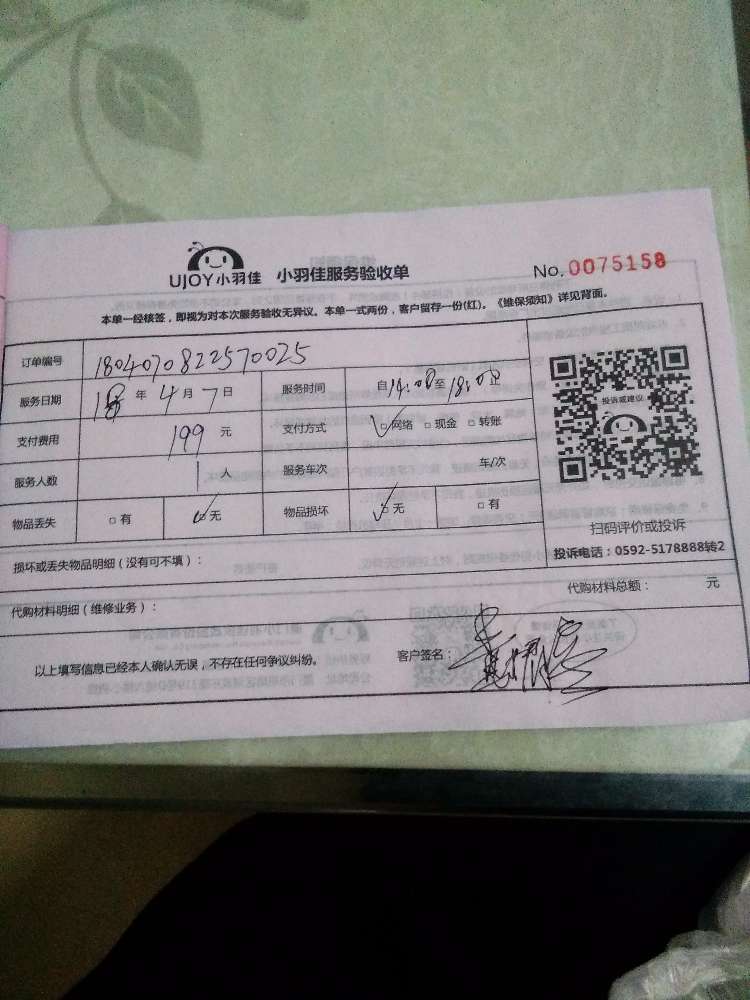 UJOY小羽佳 小羽佳服务验收单 No.0075158
本单一经核签，即视为对本次服务验收无异议。本单一式两份，客户留存一份(红)。《维保须知》详见背面。
订单编号 1804070822570025
服务日期 18 年 4 月 7 日 服务时间 自14:00至18:00止
支付费用 199 元 支付方式 □网络 □现金 □转账
服务人数 1 人 服务车次 车/次
物品丢失 □有 □无 物品损坏 □无 □有
投诉或建议
扫码评价或投诉
投诉电话：0592-5178888转2
损坏或丢失物品明细（没有可不填）：
代购材料明细（维修业务）： 代购材料总额： 元
以上填写信息已经本人确认无误，不存在任何争议纠纷。 客户签名：